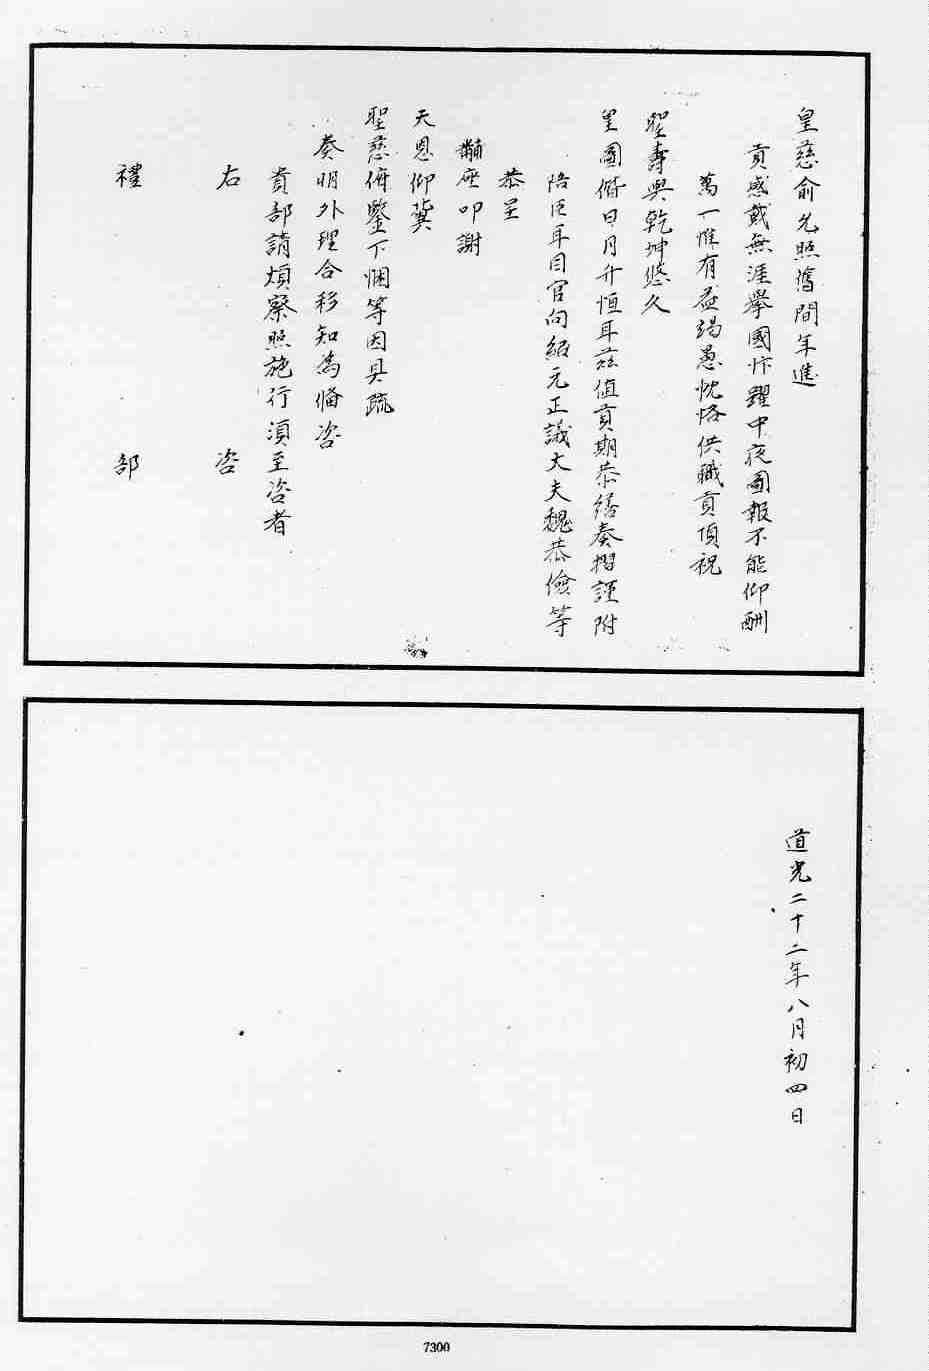 皇慈俞允照舊間年進
貢感戴無涯擧國忭躍中夜圖報不能仰酬
萬一惟有益竭愚忱恪供職貢頂祝
聖壽與乾坤悠久
皇圖偕日月升恒耳玆值貢期恭繕奏摺謹附
陪臣耳目官向紹元正議大夫魏恭儉等
恭呈
黼座叩謝
天恩仰冀
聖慈俯鑒下悃等因具疏
奏明外理合移知爲此備咨
貴部請煩察照施行須至咨者
右咨
禮部
道光二十二年八月初四日
7300